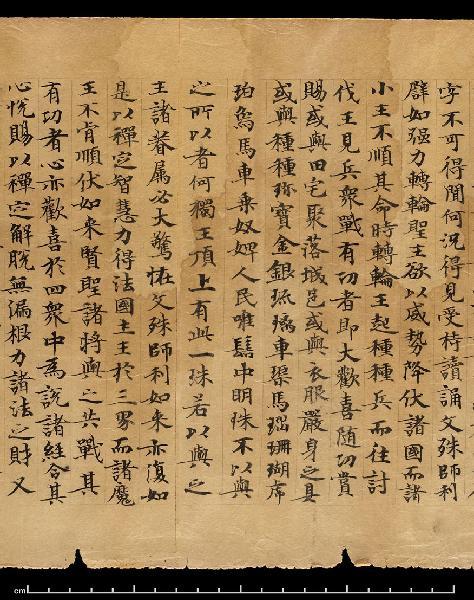 字不可得聞何況得見受持讀誦文殊師利
譬如强力轉輪聖王欲以威勢降伏諸國而諸
小王不順其命時轉輪王起種種兵而往討
伐王見兵衆戰有功者即大歡喜隨功賞
賜或與田宅聚落城邑或與衣服嚴身之具
或與種種珎寶金銀琉璃車璩馬瑙珊瑚席
珀爲馬車乘奴婢人民唯髻中明珠不以與
之所以者何獨王頂上有此一珠若以與之
王諸眷屬必大驚恠文殊師利如來亦復如
是以禪定智慧力得法國土王於三界而諸魔
王不肯順伏如来賢聖諸將與之共戰其
有功者心亦歡喜於四衆中爲説諸經令其
心悦賜以禪定解脫無漏根力諸法之財又
cm